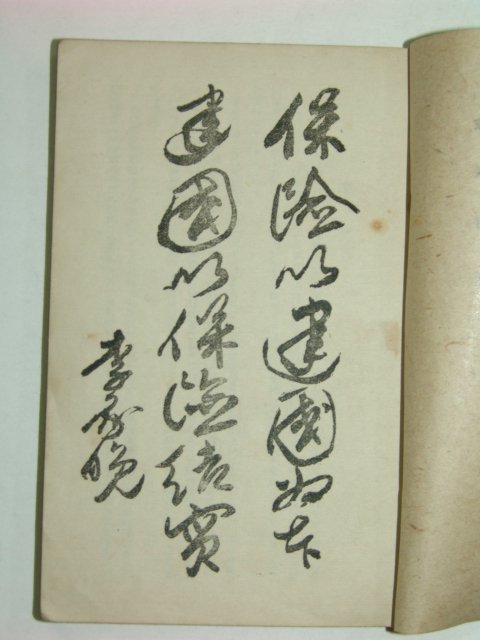 保險以建國如花
建國以保險結實
李承晩